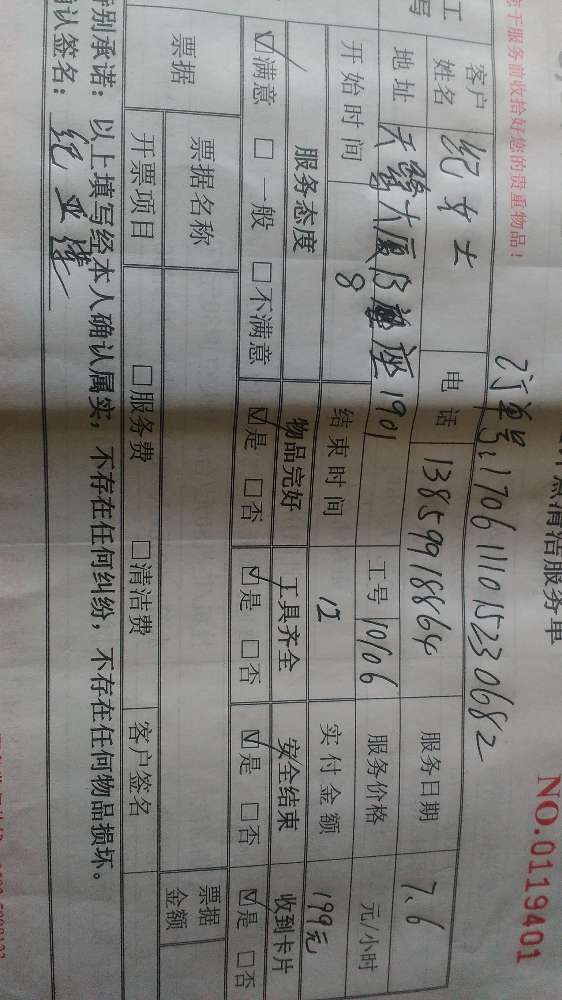 点清洁服务单
NO.0119401
于服务前收拾好您的贵重物品!
订单号:170611101523 0682
客户姓名 纪女士 电话 13859918864 服务日期 7.6
地址 天鹭大厦B座1901 工号 10106 服务价格 元/小时
开始时间 8 结束时间 12 实付金额 199元
服务态度 物品完好 工具齐全 安全结束 收到卡片
☑满意 □一般 □不满意 ☑是 □否 ☑是 □否 ☑是 □否 ☑是 □否
票据 票据名称 票据金额
开票项目 □服务费 □清洁费 客户签名
特别承诺:以上填写经本人确认属实,不存在任何纠纷,不存在任何物品损坏。
确认签名:纪亚